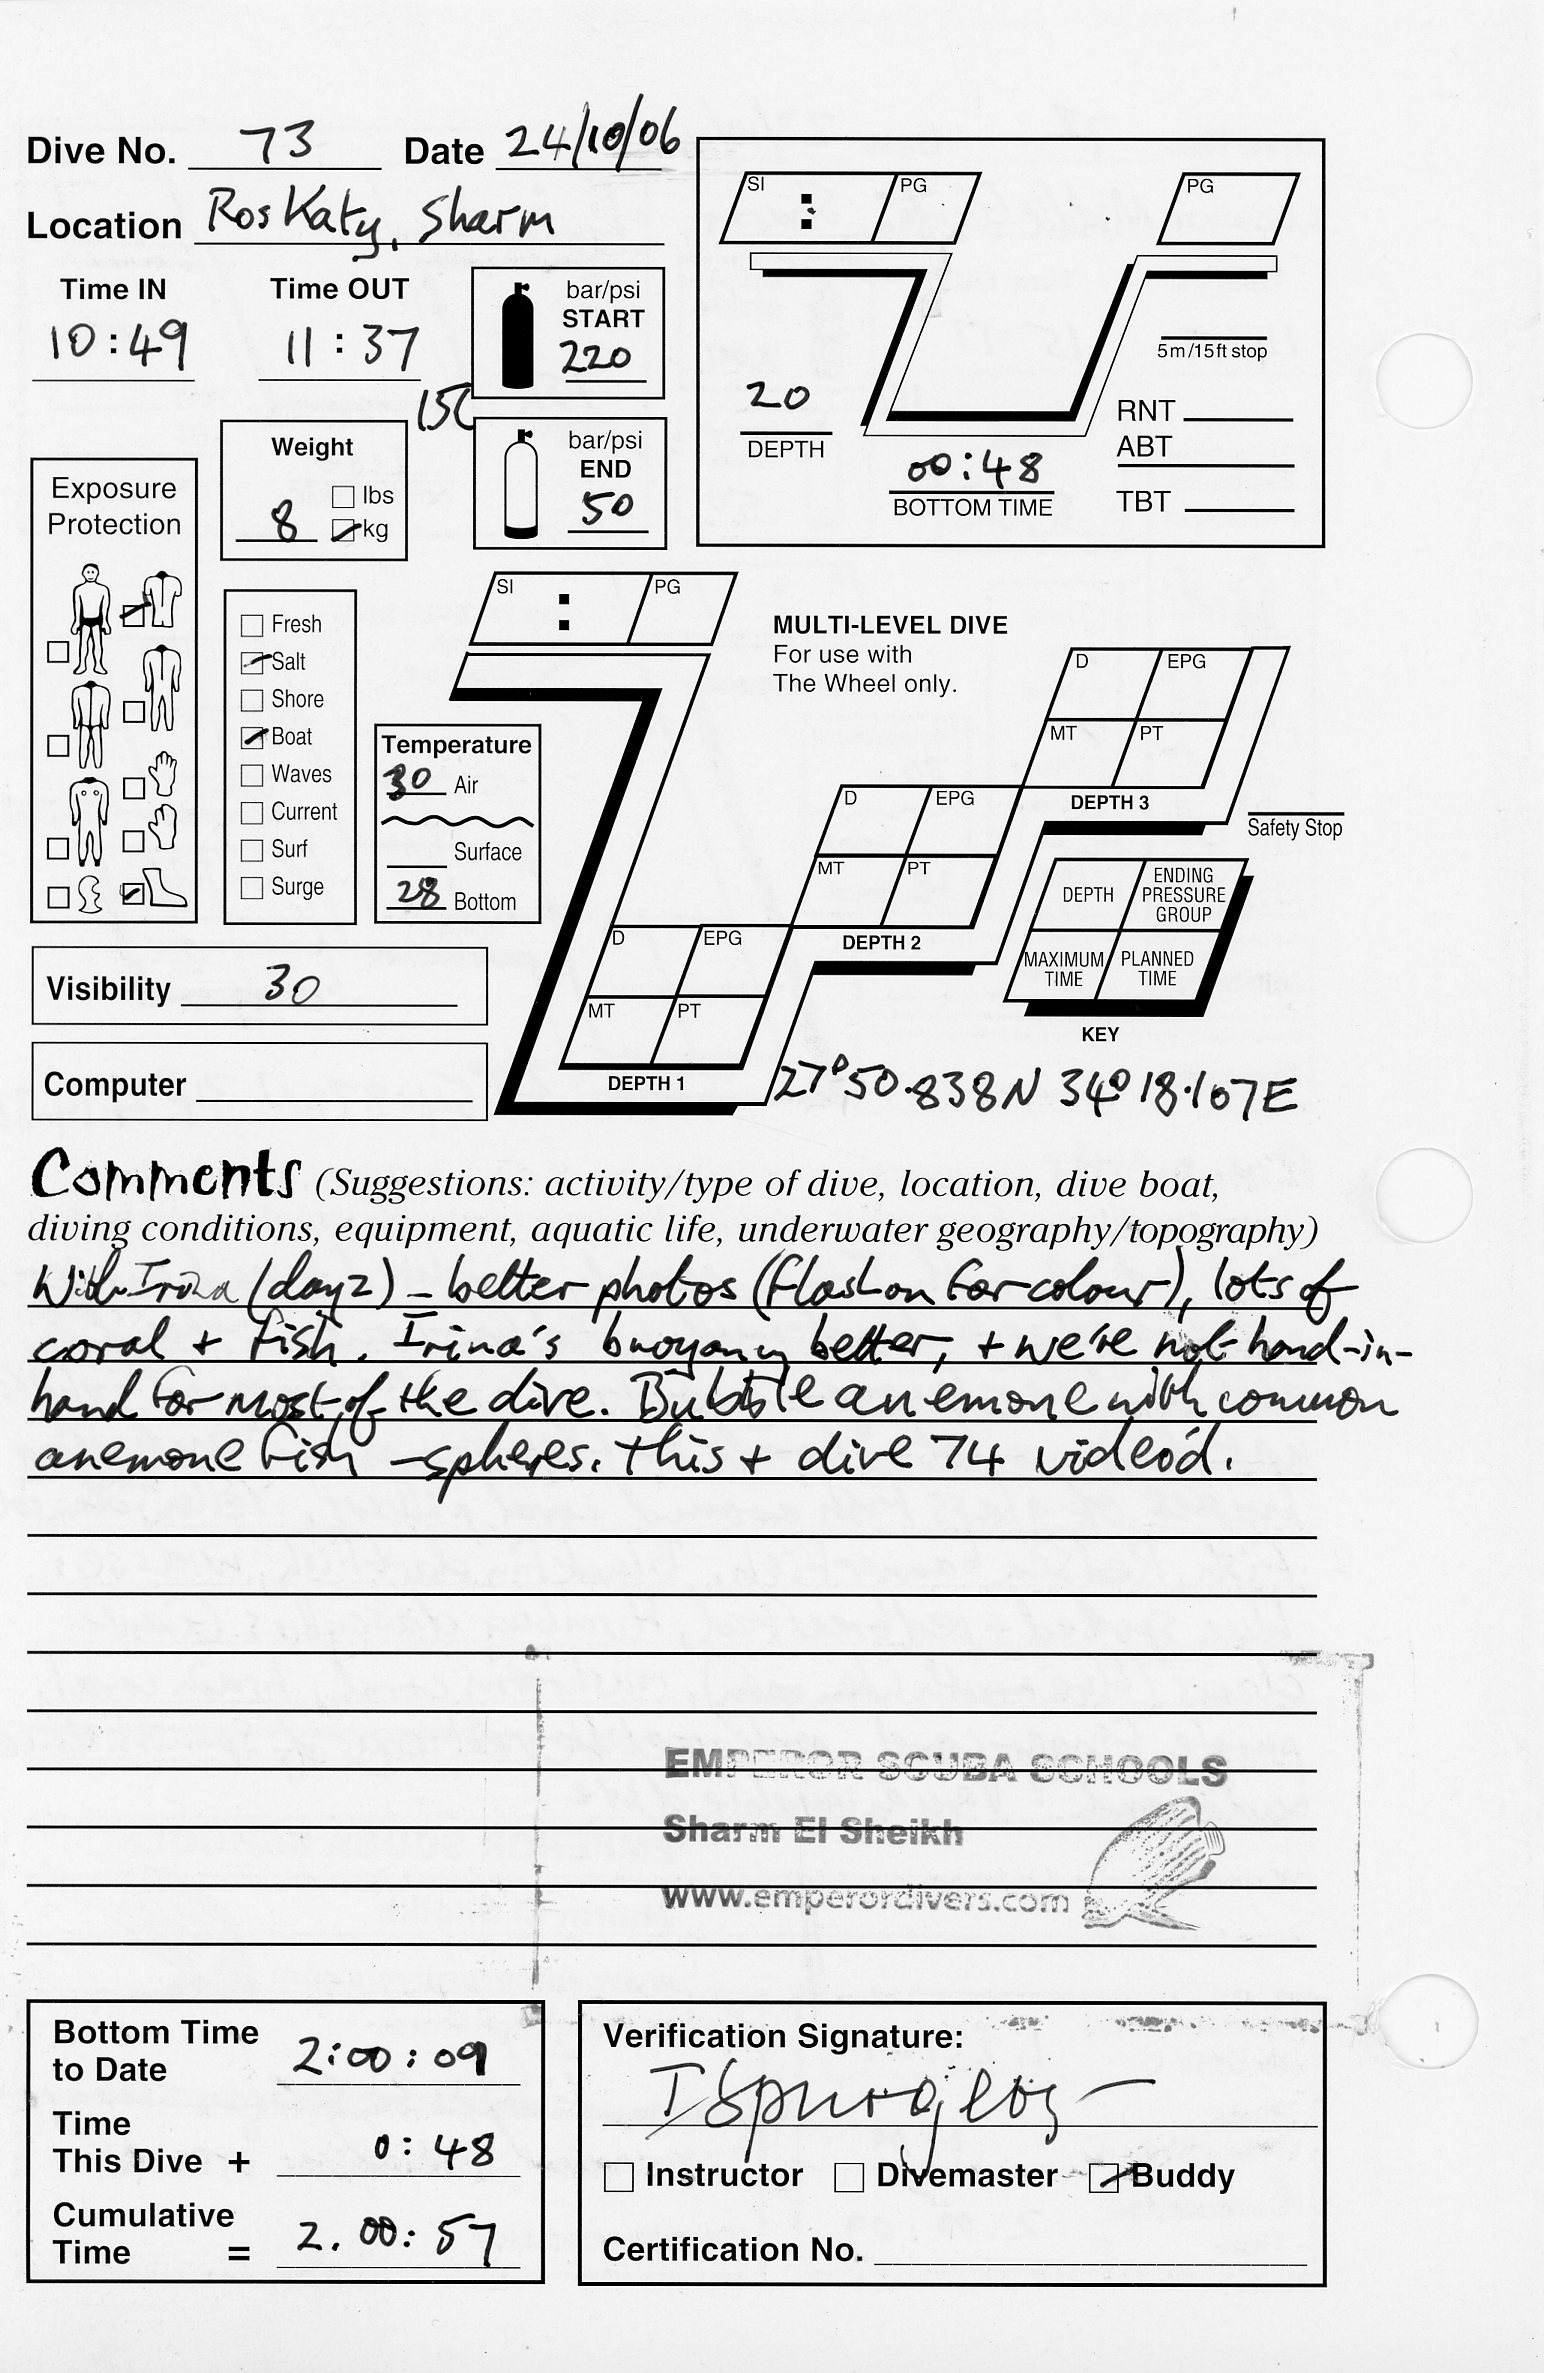 Dive No. 73 Date 24/10/06
Location Ros Katy, Sharm
Time IN Time OUT
10:49 11:37
bar/psi
START
220
15L
bar/psi
END
50
Weight
lbs
8 kg
Exposure
Protection
Fresh
Salt
Shore
Boat
Waves
Current
Surf
Surge
Temperature
30 Air
Surface
28 Bottom
Visibility 30
Computer
SI : PG
PG
5m/15ft stop
20
DEPTH
00:48
BOTTOM TIME
RNT
ABT
TBT
SI : PG
MULTI-LEVEL DIVE
For use with
The Wheel only.
D EPG
MT PT
DEPTH 3
Safety Stop
D EPG
MT PT
DEPTH 2
D EPG
MT PT
DEPTH 1
DEPTH ENDING PRESSURE GROUP
MAXIMUM TIME PLANNED TIME
KEY
27°50.838N 34°18.107E
Comments (Suggestions: activity/type of dive, location, dive boat,
diving conditions, equipment, aquatic life, underwater geography/topography)
With Irina (day 2) – better photos (flash on for colour), lots of
coral + fish. Irina's buoyancy better, + we're not hand-in-
hand for most of the dive. Bubble anemone with common
anemone fish – spheres. This + dive 74 video'd.
EMPEROR SCUBA SCHOOLS
Sharm El Sheikh
www.emperordivers.com
Bottom Time
to Date 2:00:09
Time
This Dive + 0:48
Cumulative
Time = 2.00:57
Verification Signature:
Instructor Divemaster Buddy
Certification No.